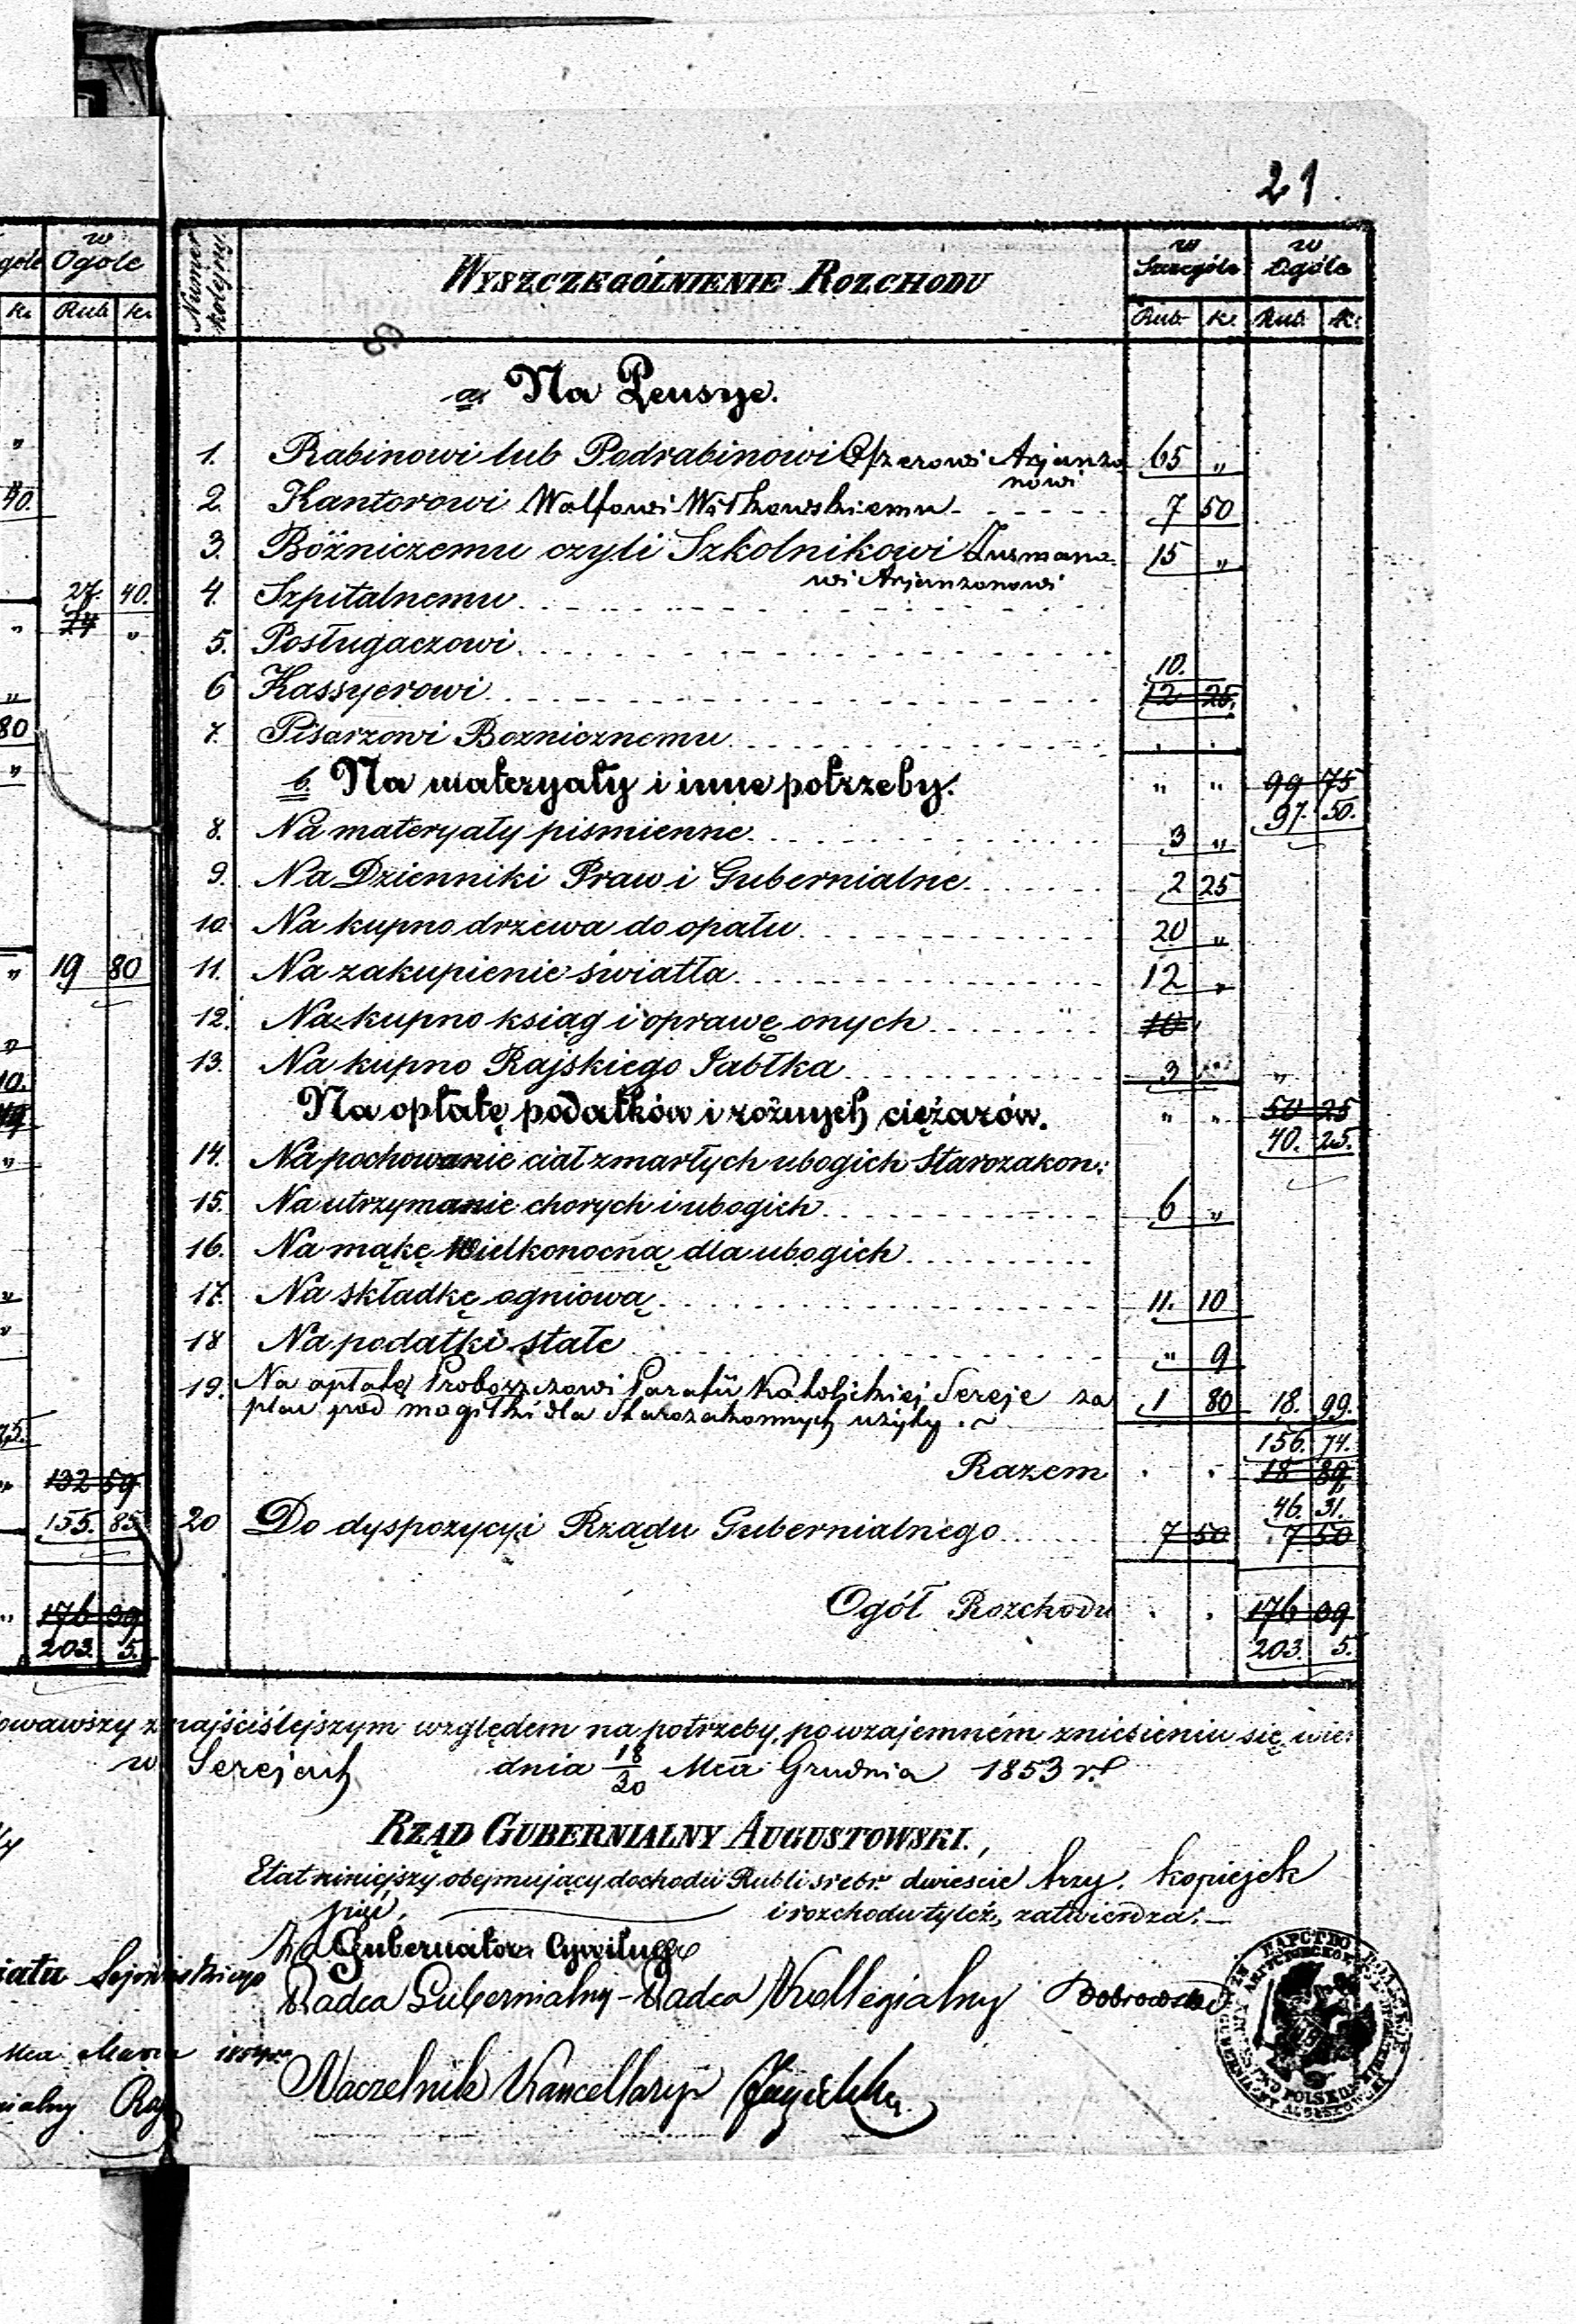 21.
w Ogole
Rub. k.
Numer kolejny
WYSZCZEGÓLNIENIE ROZCHODU
w Szczególe
w Ogóle
Rub. k. Rub. k.
a) Na Pensye.
1. Rabinowi lub Podrabinowi Arjanzo 65 "
nowi
2. Kantorowi Wolfowi Witkowskiemu 7 50
3. Bóżniczemu czyli Szkolnikowi Zusmano 15 "
wi Arjanzonowi
27. 40. 4. Szpitalnemu
24 "
5. Posługaczowi
10.
6 Kassyerowi 12 25.
7. Pisarzowi Boznicznemu
b. Na materyały i inne potrzeby. " " 99 75
97. 50.
8. Na materyały pismienne 3 "
9. Na Dzienniki Praw i Gubernialne 2 25
10. Na kupno drzewa do opału 20 "
19 80 11. Na zakupienie światła 12 "
12. Na kupno ksiąg i oprawę onych 10
13. Na kupno Rajskiego Jabłka 3 "
Na opłatę podatków i rożnych ciężarów. " " 50 25
40. 25.
14. Na pochowanie ciał zmarłych ubogich Starozakon:
15. Na utrzymanie chorych i ubogich 6 "
16. Na mąkę Wielkonocną dla ubogich
17. Na składkę ogniową 11. 10
18 Na podatki stałe " 9
19. Na opłatę Proboszczowi Parafii Katolickiej Sereje za 1 80 18. 99.
plac pod mogiłki dla Starozakonnych użyty.
156. 74.
132 59 Razem 18 89
46. 31.
155. 85 20 Do dyspozycyi Rządu Gubernialnego 7 50 7 50
176 09 Ogół Rozchodu 176 09
203. 5. 203. 5.
owawszy z najściślejszym względem na potrzeby, po wzajemném zniesieniu się, wie:
w Serejach dnia 18/30 Mca Grudnia 1853 r.
RZĄD GUBERNIALNY AUGUSTOWSKI.,
Etat niniejszy obejmujący dochodu Rubli srebr. dwieście trzy. kopiejek
pięć, i rozchodu tyleż, zatwierdza.
Gubernatora Cywilnego
Radca Gubernialny - Radca Kollegialny Dobrowolski
Mca Marca
Naczelnik Kancellaryi